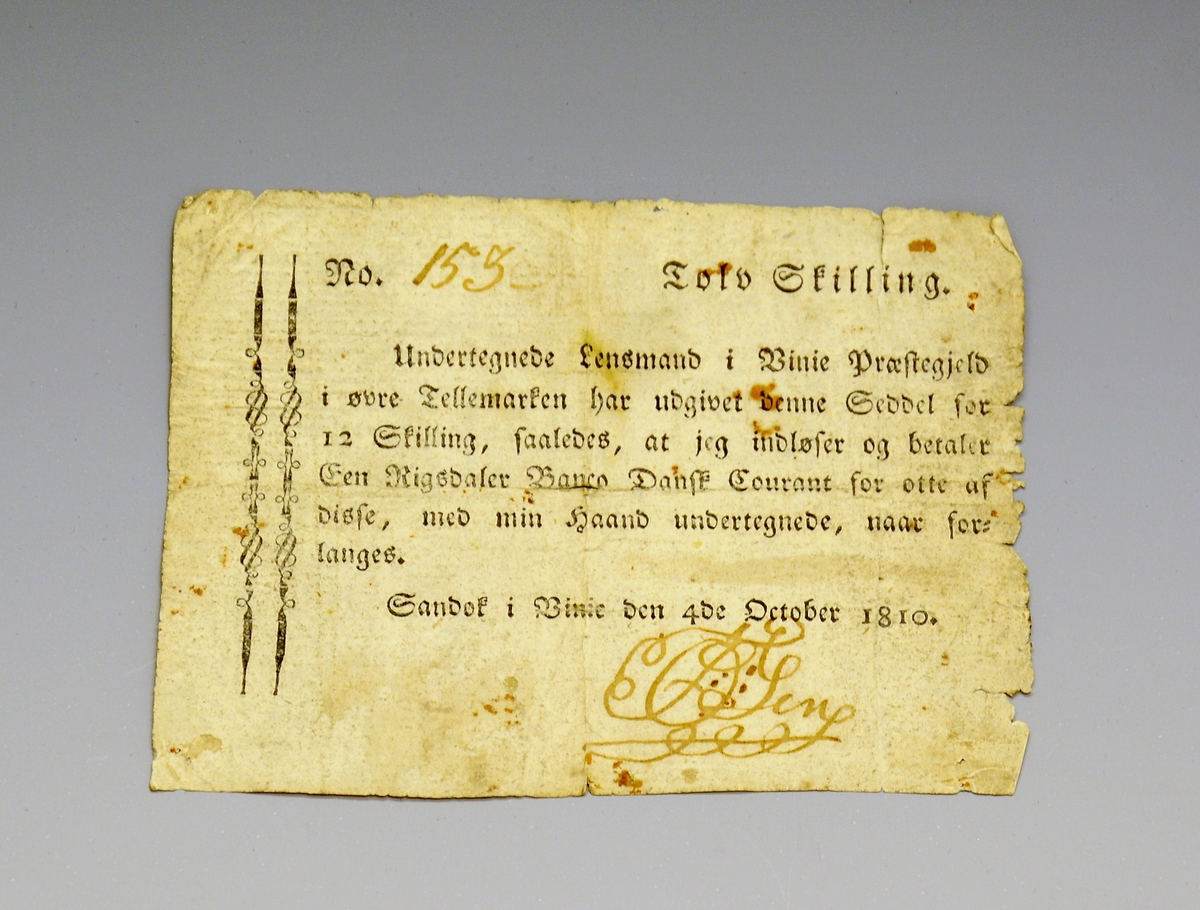 No. 153 Tolv Skilling.
Undertegnede Lensmand i Vinie Præstegjeld
i øvre Tellemarken har udgivet denne Seddel for
12 Skilling, saaledes, at jeg indløser og betaler
Een Rigsdaler Banco Dansk Courant for otte af
disse, med min Haand undertegnede, naar for-
langes.
Sandok i Vinie den 4de October 1810.